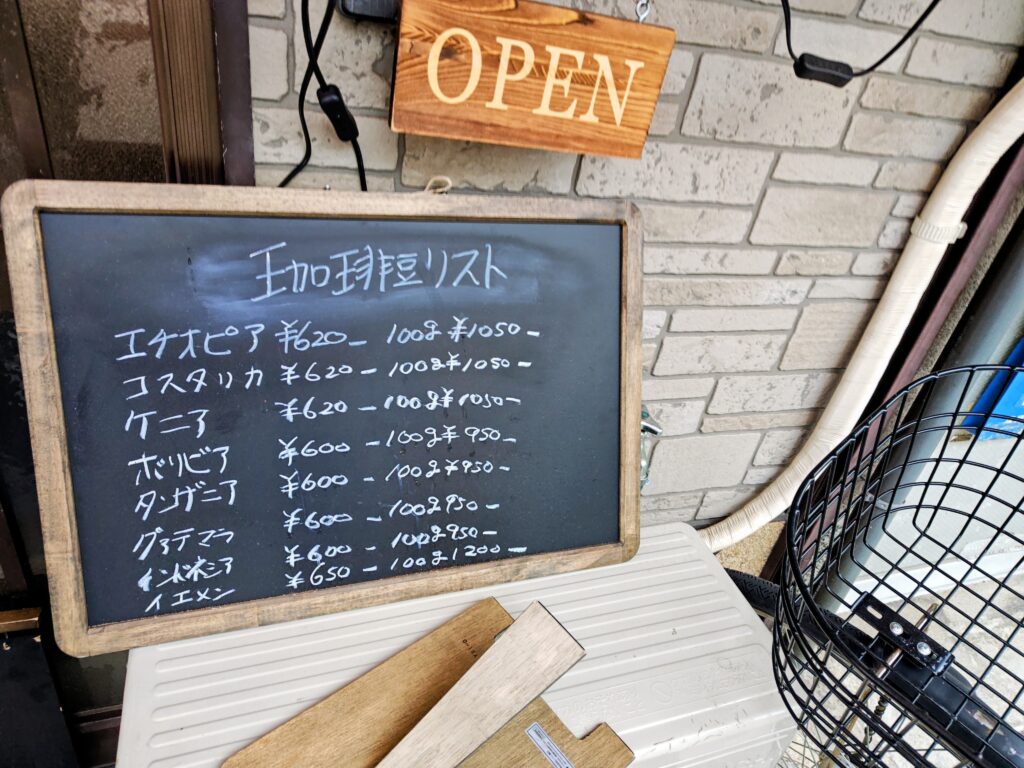 OPEN
珈琲豆リスト
エチオピア ¥620- 100g ¥1050-
コスタリカ ¥620- 100g¥1050-
ケニア ¥620-100g¥1050-
ボリビア ¥600-100g¥950-
タンザニア ¥600-100g¥950-
グァテマラ ¥600-100g950-
インドネシア ¥600-100g950-
イエメン ¥650-100g1200-